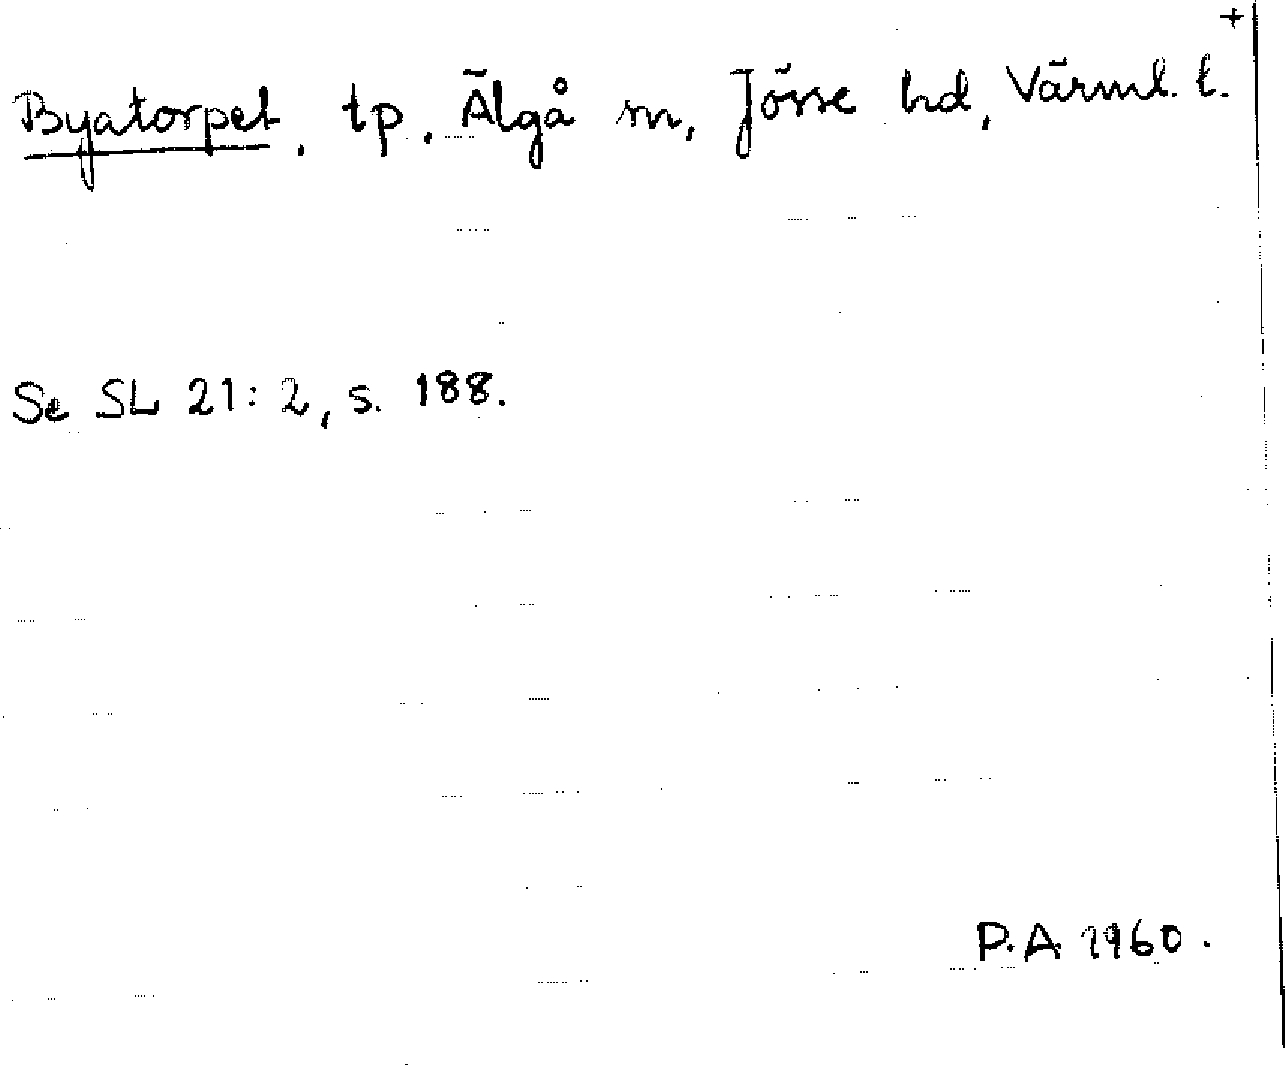 +
Byatorpet, tp. Älgå sn, Jösse hd, Värml. l.
Se SL 21:2, s. 188.
P.A. 1960.